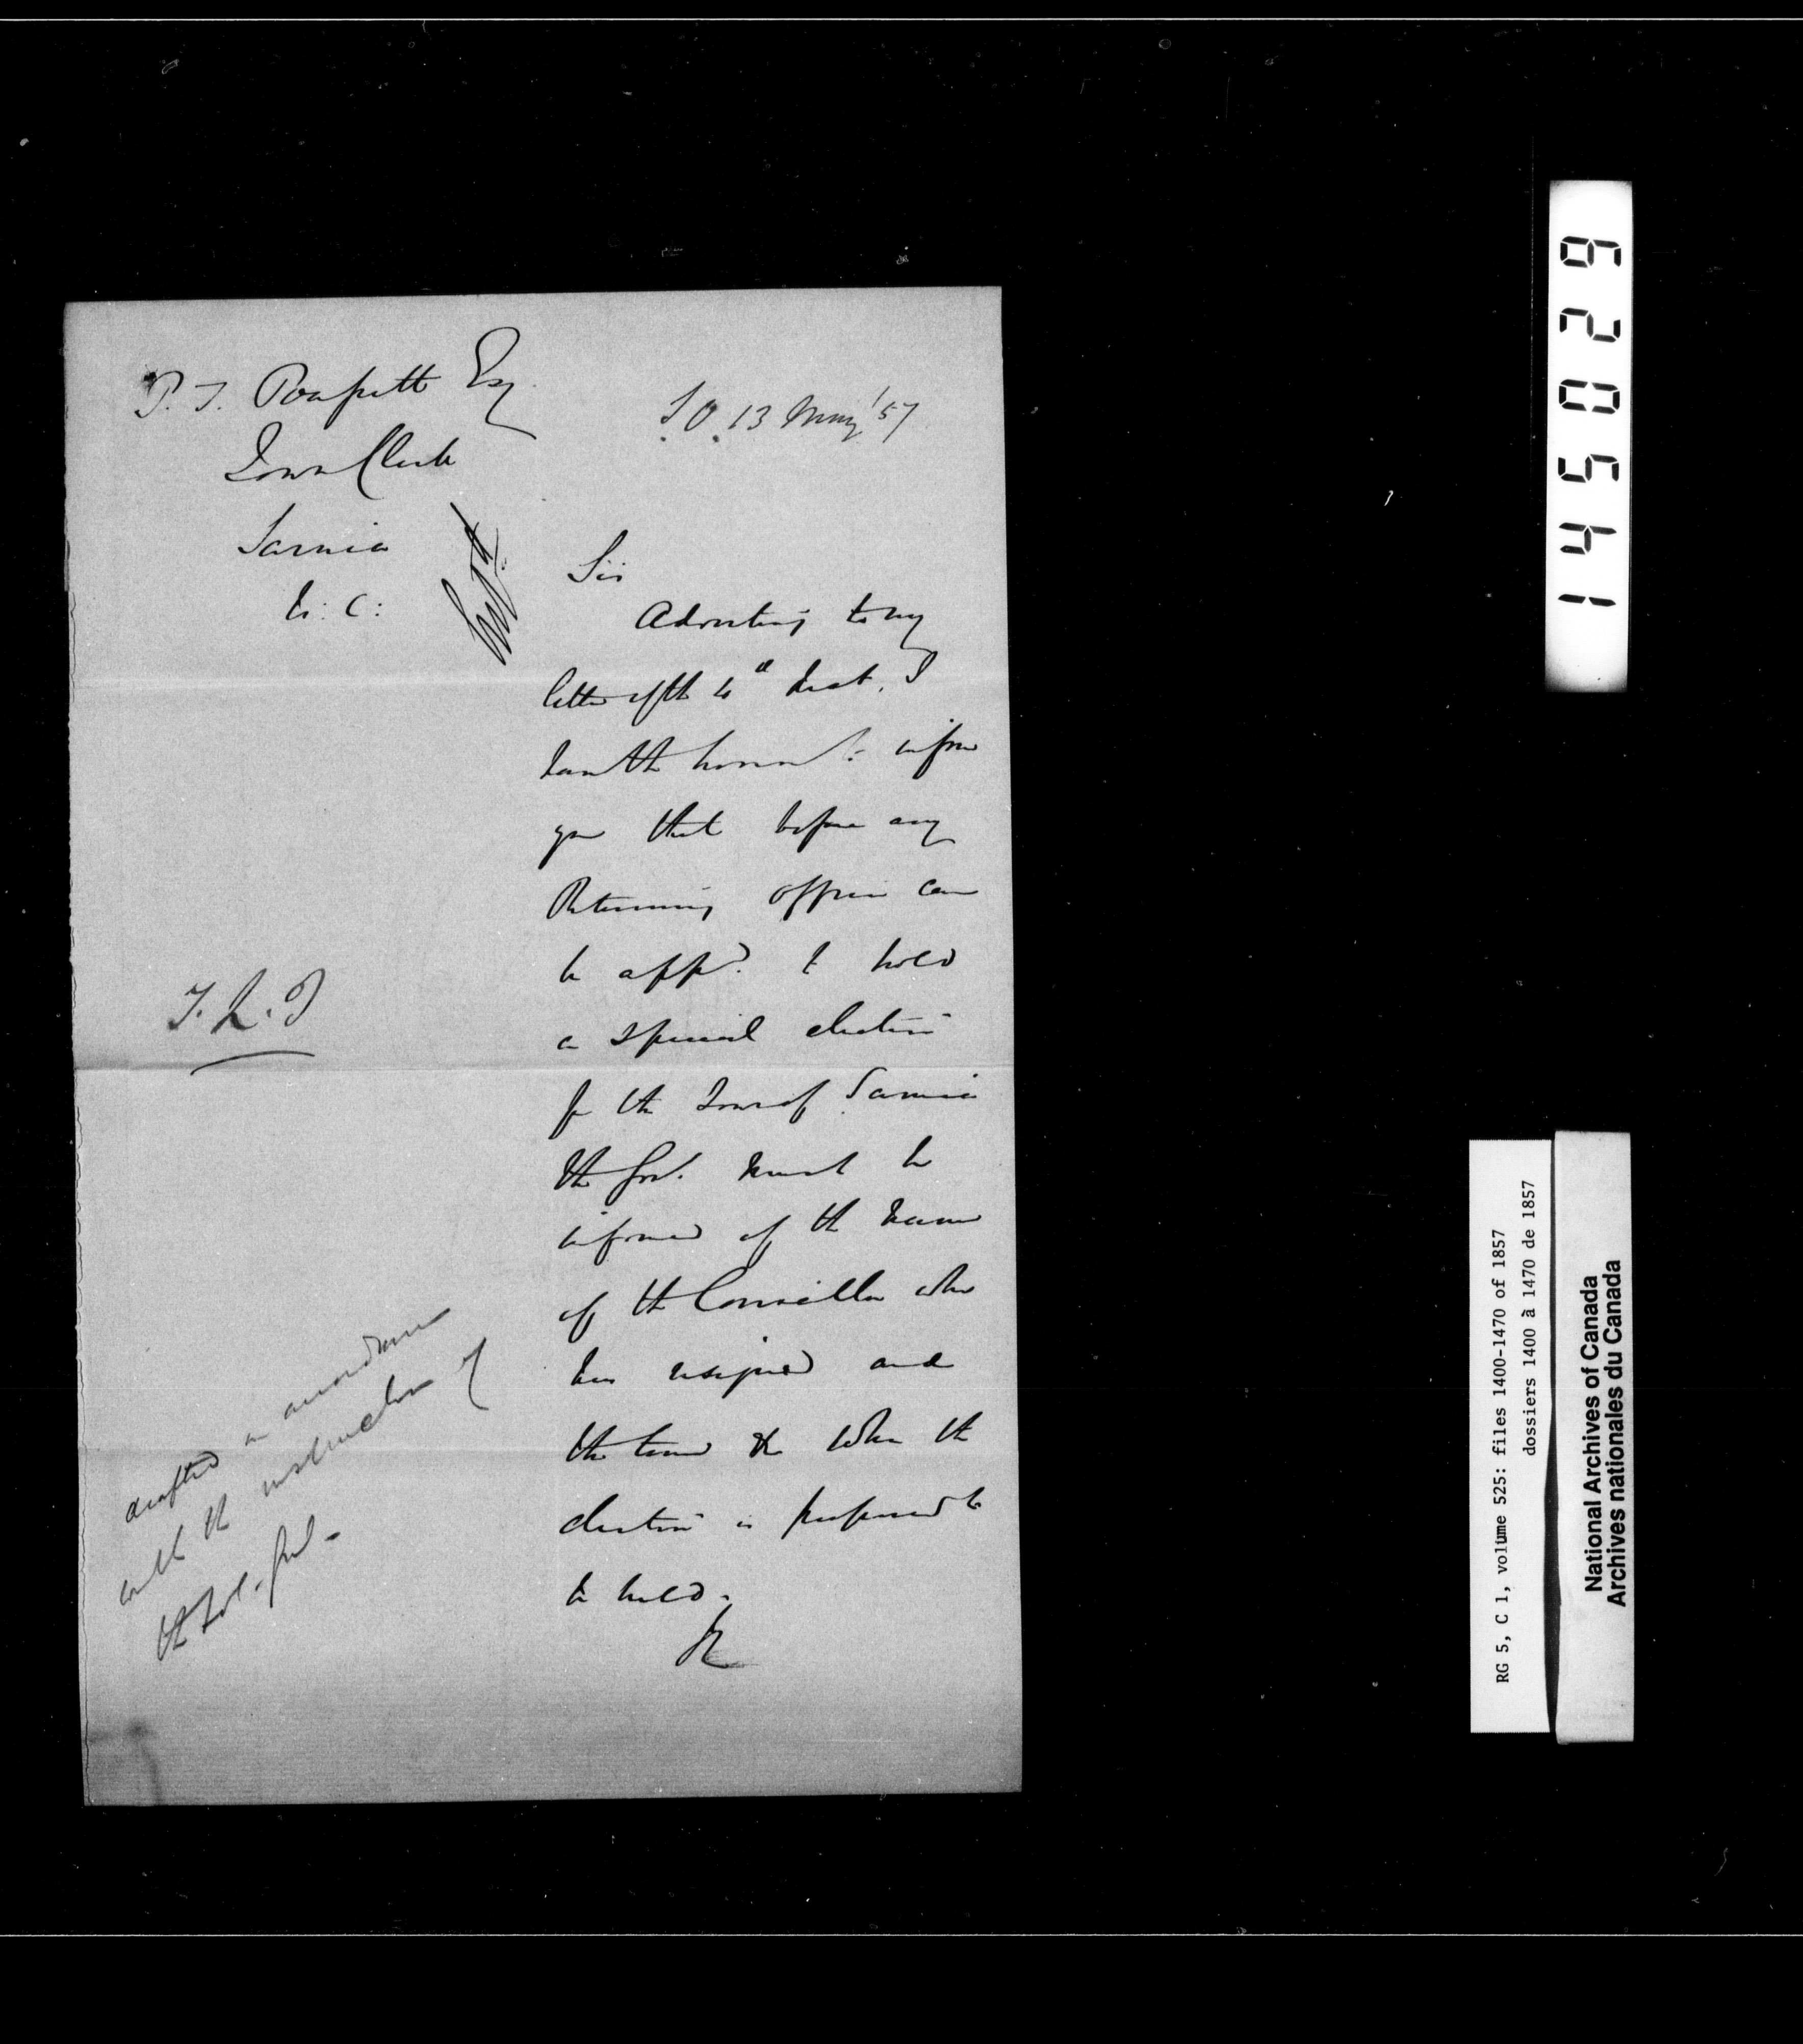 P. T. Poussett Esq
Town Clerk
Sarnia
U. C.
S. O. 13 May '57
Sir
Adverting to my
letter of the 4th Inst. I
have the honor to inform
you that before any
Returning Officer can
be appd. to hold
a special election
for the Town of Sarnia
the Govt. must be
informed of the name
of the Councillor who
has resigned and
the time &c when the
election is proposed to
be held.
&c
T. L. T
drafted in accordance
with the instruction of
the
145029
RG 5, C 1, volume 525: files 1400-1470 of 1857
dossiers 1400 à 1470 de 1857
National Archives of Canada
Archives nationales du Canada